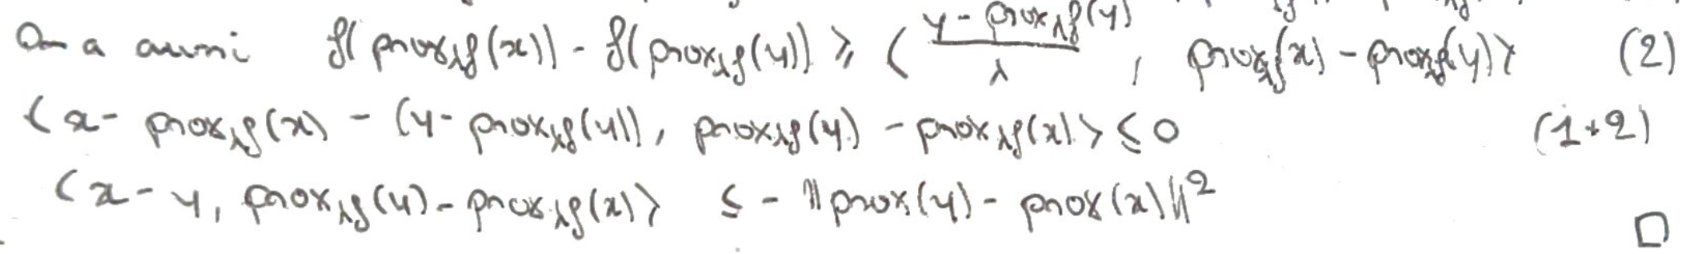 On a aussi f(prox_λf(x)) - f(prox_λf(y)) ≥ ⟨ (y - prox_λf(y)) / λ , prox_λf(x) - prox_λf(y)⟩ (2)
⟨x - prox_λf(x) - (y - prox_λf(y)), prox_λf(y) - prox_λf(x)⟩ ≤ 0 (1+2)
⟨x - y, prox_λf(y) - prox_λf(x)⟩ ≤ - ||prox(y) - prox(x)||² □